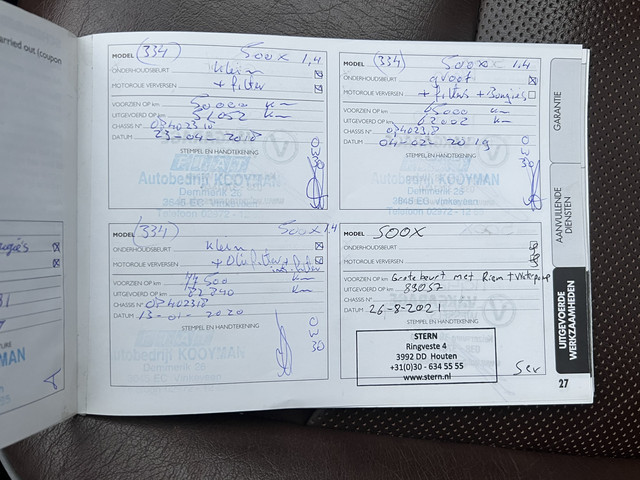 arried out (coupon
MODEL (334) 500X 1,4
ONDERHOUDSBEURT klein
MOTOROLIE VERVERSEN + filter
VOORZIEN OP km 50000 km
UITGEVOERD OP km 51052 km
CHASSIS N°
DATUM 23-04-2018
STEMPEL EN HANDTEKENING
0330
Autobedrijf KOOYMAN
Demmerik 25
3645 EC Vinkeveen
MODEL (334) 500X 1,4
ONDERHOUDSBEURT groot
MOTOROLIE VERVERSEN + filters + Bougies
VOORZIEN OP km 65000 km
UITGEVOERD OP km 62002 km
CHASSIS N°
DATUM 04-02-2019
STEMPEL EN HANDTEKENING
0330
Autobedrijf KOOYMAN
Demmerik 25
3645 EG Vinkeveen
MODEL (334) 500X 1,4
ONDERHOUDSBEURT klein
MOTOROLIE VERVERSEN + Oliefilter +
VOORZIEN OP km 77500 km
UITGEVOERD OP km km
CHASSIS N° 0P402318
DATUM 13-01-2020
STEMPEL EN HANDTEKENING
0330
Autobedrijf KOOYMAN
Demmerik 25
MODEL 500X
ONDERHOUDSBEURT
MOTOROLIE VERVERSEN
VOORZIEN OP km Grote beurt met Riem + Waterpomp
UITGEVOERD OP km 83057
CHASSIS N°
DATUM 26-8-2021
STEMPEL EN HANDTEKENING
STERN
Ringveste 4
3992 DD Houten
+31(0)30 - 634 55 55
www.stern.nl
GARANTIE
AANVULLENDE
DIENSTEN
UITGEVOERDE
WERKZAAMHEDEN
27